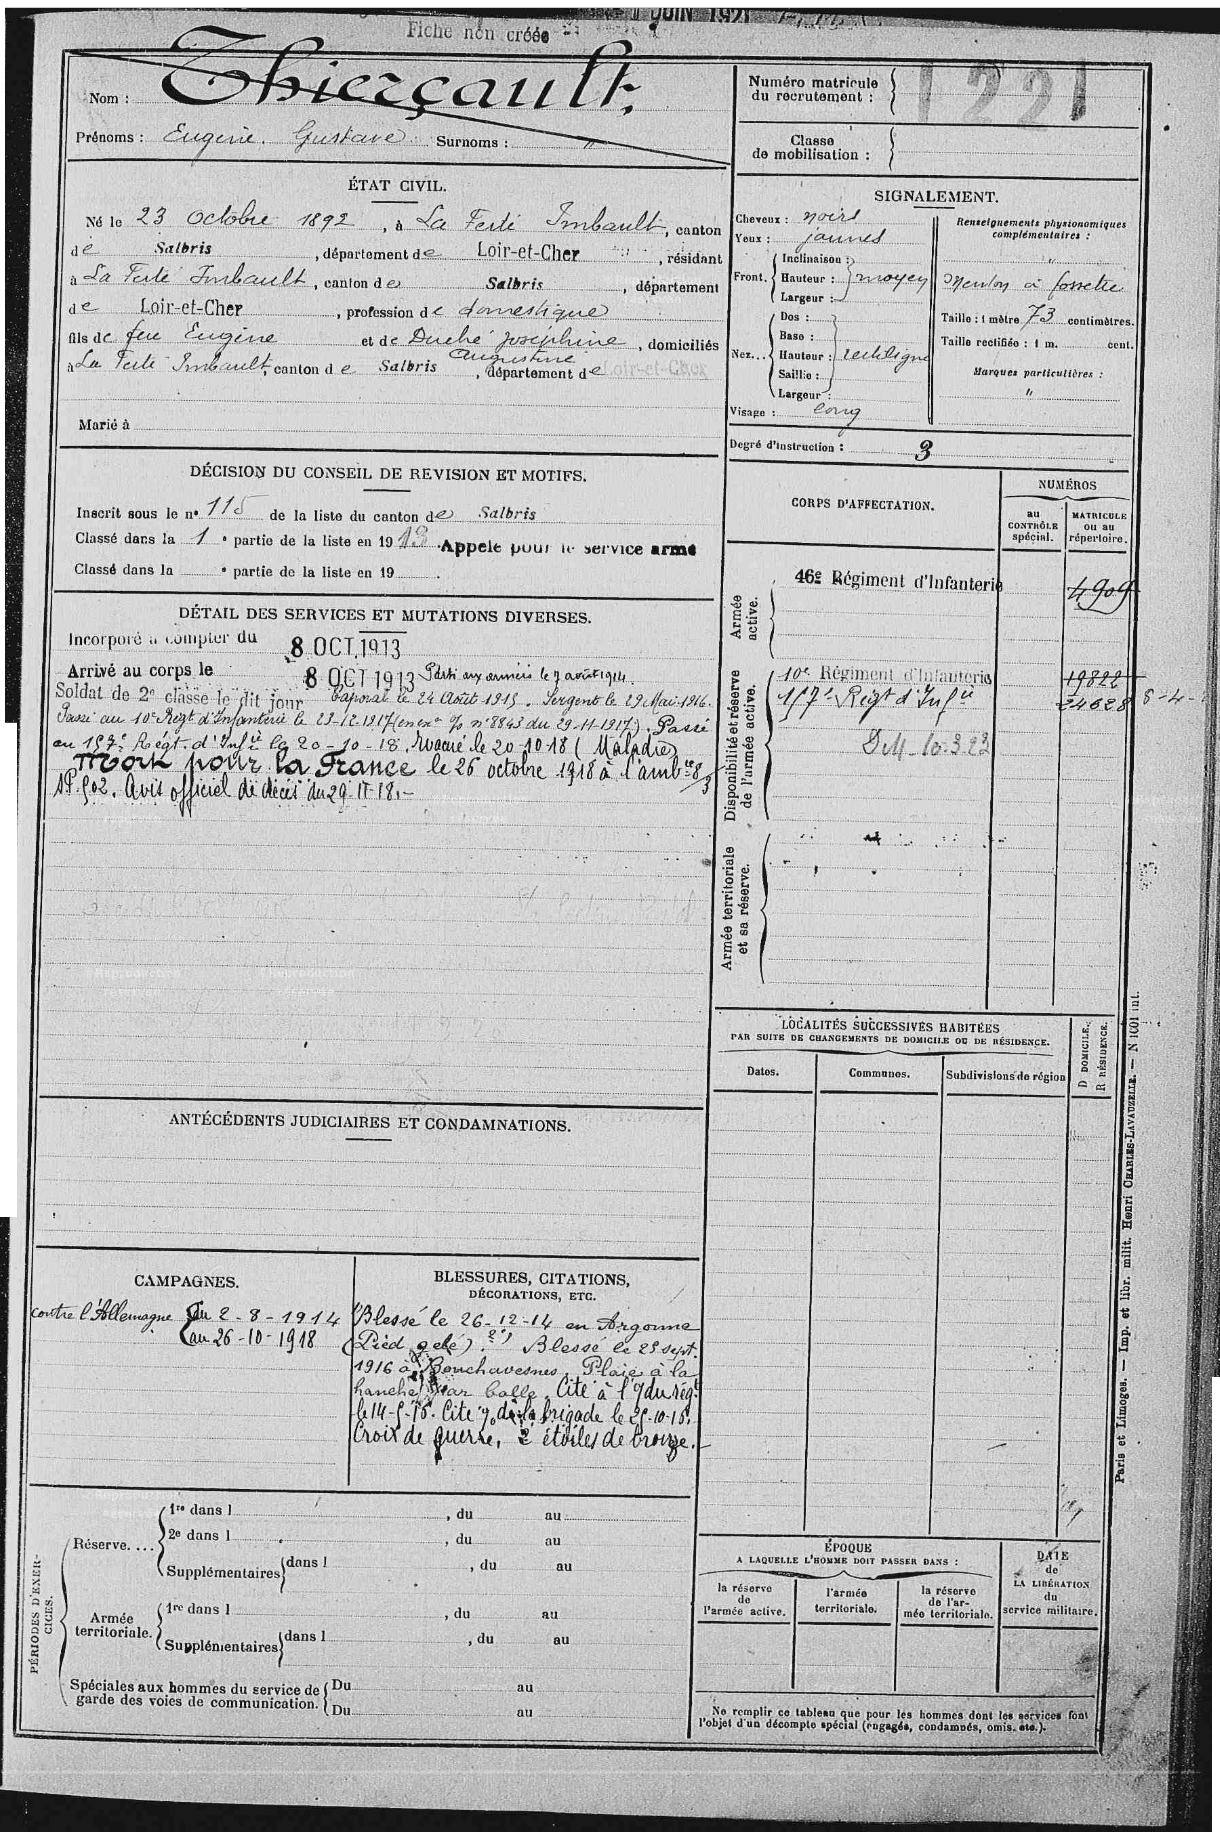 JUIN 1921
Fiche non créée
Nom : Thierçault
Prénoms : Eugène. Gustave Surnoms : "
ÉTAT CIVIL.
Né le 23 Octobre 1892, à La Ferté Imbault, canton
de Salbris, département de Loir-et-Cher, résidant
à La Ferté Imbault, canton de Salbris, département
de Loir-et-Cher, profession de domestique
fils de feu Eugène et de Duché Joséphine, domiciliés
Augustine
à La Ferté Imbault, canton de Salbris, département de Loir-et-Cher
Marié à
DÉCISION DU CONSEIL DE REVISION ET MOTIFS.
Inscrit sous le n° 115 de la liste du canton de Salbris
Classé dans la 1e partie de la liste en 1913. Appelé pour le service armé
Classé dans la e partie de la liste en 19 .
DÉTAIL DES SERVICES ET MUTATIONS DIVERSES.
Incorporé à compter du 8 OCT. 1913
Arrivé au corps le 8 OCT 1913 Parti aux armées le 7 août 1914.
Soldat de 2e classe le dit jour Caporal le 24 Août 1915. Sergent le 29 Mai 1916.
Passé au 10e Régt d'Infanterie le 23-12-1917 (en ex° /o n° 8843 du 29-11-1917). Passé
au 157e Régt. d'Infie le 20-10-18. Evacué le 20-10-18 (Maladie)
Mort pour la France le 26 octobre 1918 à l'ambce 8/3
SP. 502. Avis officiel de décès du 29-11-18.-
ANTÉCÉDENTS JUDICIAIRES ET CONDAMNATIONS.
CAMPAGNES.
contre l'Allemagne du 2-8-1914
au 26-10-1918
BLESSURES, CITATIONS,
DÉCORATIONS, ETC.
1°) Blessé le 26-12-14 en Argonne
(Pied gelé). 2°) Blessé le 25 sept.
1916 à Bouchavesnes. Plaie à la
hanche par balle. Cité à l'/o du régt
le 14-5-16. Cité /o de la brigade le 25-10-16.
Croix de guerre, 2 étoiles de bronze.-
PÉRIODES D'EXERCICES.
Réserve. ...
1re dans l , du au
2e dans l , du au
Supplémentaires dans l , du au
Armée territoriale.
1re dans l , du au
Supplémentaires dans l , du au
Spéciales aux hommes du service de Du au
garde des voies de communication. Du au
Numéro matricule
du recrutement : 1221
Classe
de mobilisation :
SIGNALEMENT.
Cheveux : noirs
Yeux : jaunes
Front. Inclinaison :
Hauteur : moyen
Largeur :
Nez... Dos :
Base :
Hauteur : rectiligne
Saillie :
Largeur :
Visage : long
Renseignements physionomiques
complémentaires :
"
Menton à fossette
Taille : 1 mètre 73 centimètres.
Taille rectifiée : 1 m. cent.
Marques particulières :
"
Degré d'instruction : 3
CORPS D'AFFECTATION.
NUMÉROS
au
CONTRÔLE
spécial.
MATRICULE
ou au
répertoire.
Armée
active.
46e Régiment d'Infanterie 4909
Disponibilité et réserve
de l'armée active.
10e Régiment d'Infanterie 19822
157e Régt d'Infie 24628
DM 10.3.23
Armée territoriale
et sa réserve.
LOCALITÉS SUCCESSIVES HABITÉES
PAR SUITE DE CHANGEMENTS DE DOMICILE OU DE RÉSIDENCE.
Dates.
Communes.
Subdivisions de région
D DOMICILE.
R RÉSIDENCE.
ÉPOQUE
A LAQUELLE L'HOMME DOIT PASSER DANS :
la réserve
de
l'armée active.
l'armée
territoriale.
la réserve
de l'ar-
mée territoriale.
DATE
de
LA LIBÉRATION
du
service militaire.
Ne remplir ce tableau que pour les hommes dont les services font
l'objet d'un décompte spécial (engagés, condamnés, omis. etc.).
Paris et Limoges. — Imp. et libr. milit. Henri CHARLES-LAVAUZELLE. — N 1001 int.